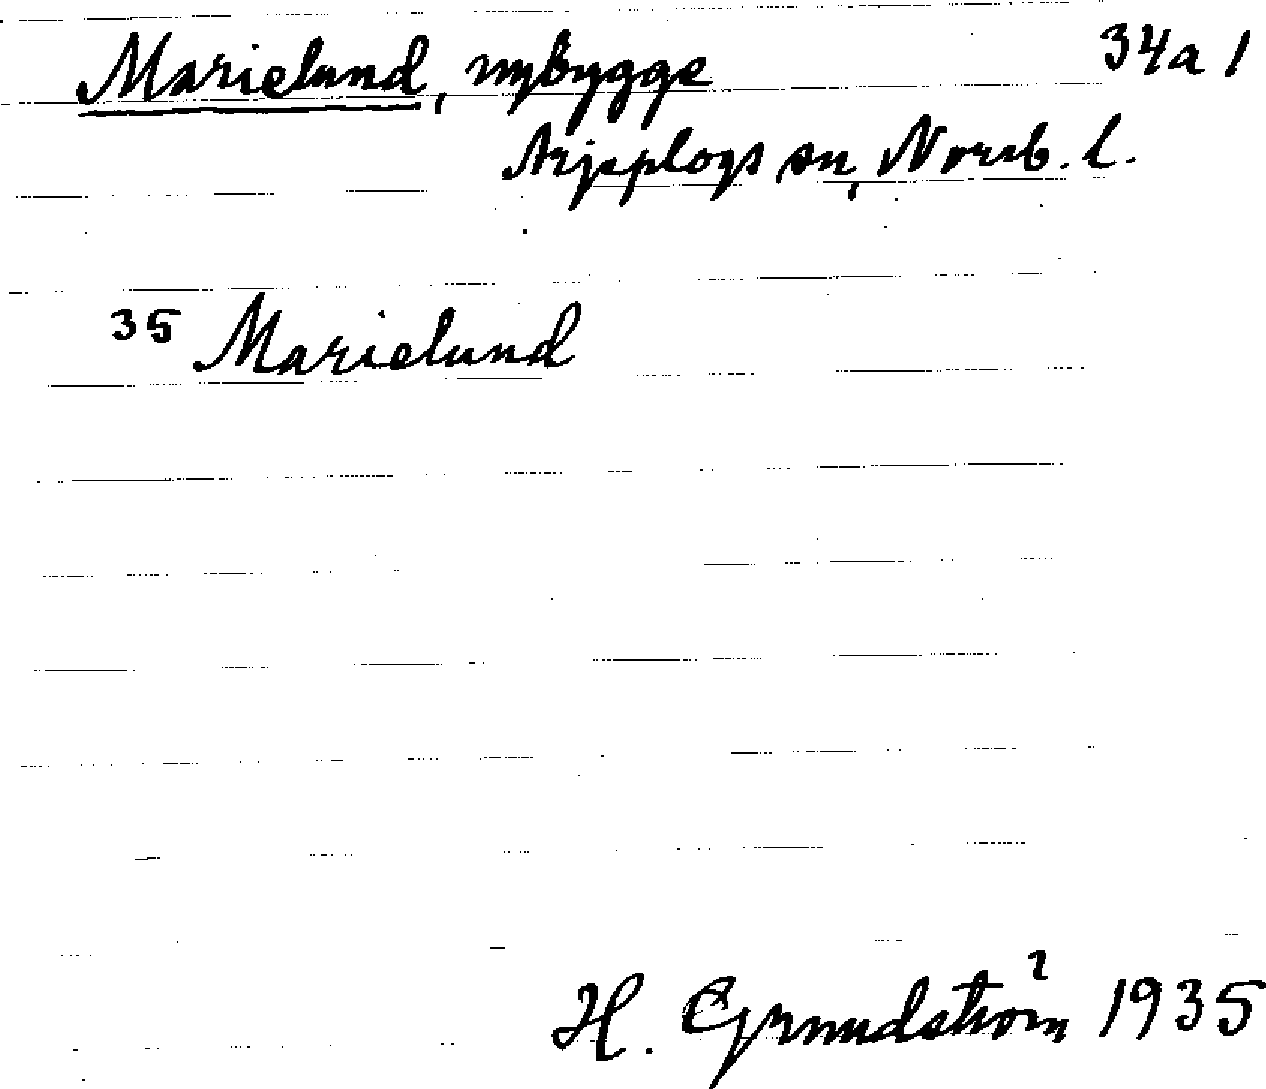 Marielund, nybygge 34a 1
Arjeplogs sn, Norrb. l.
35 Marielund
H. Grundström 1935